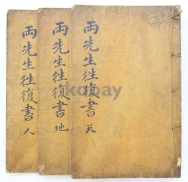 兩先生往復書 天
兩先生往復書 地
兩先生往復書 人
kobay